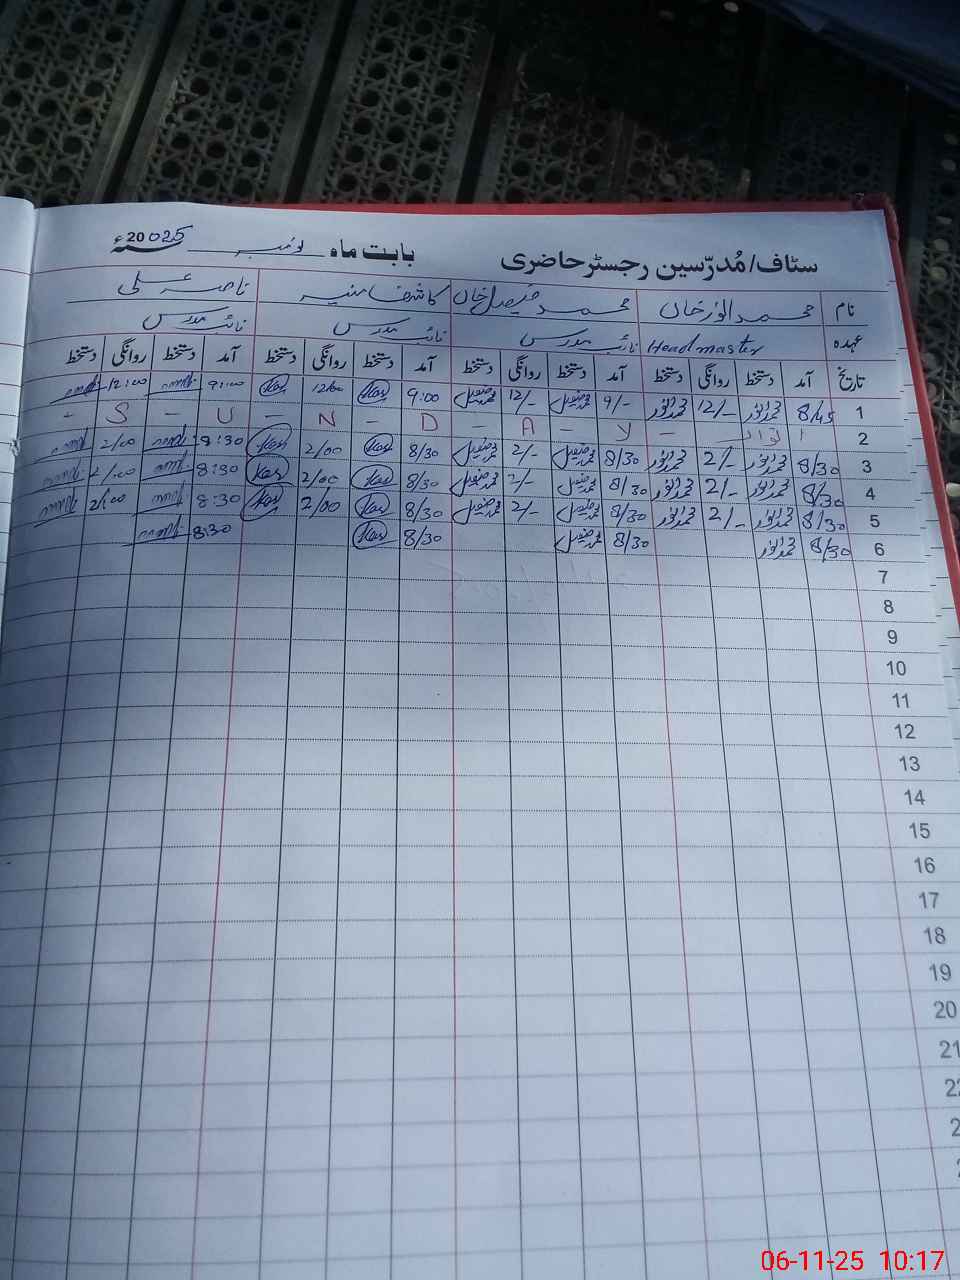 سٹاف/مُدرّسین رجسٹر حاضری بابت ماہ نومبر 20025ء
نام محمد انور خان محمد فیصل خان کاشف منیر ناصر علی
عہدہ Headmaster نائب مدرس نائب مدرس نائب مدرس
تاریخ آمد دستخط روانگی دستخط آمد دستخط روانگی دستخط آمد دستخط روانگی دستخط آمد دستخط روانگی دستخط
1 8/45 محمد انور 12/- محمد انور 9/- محمد فیصل 12/- محمد فیصل 9:00 Kas 12/00 Kas 9:00 12:00
2 اتوار - Y - A - D - N - U - S -
3 8/30 محمد انور 2/- محمد انور 8/30 محمد فیصل 2/- محمد فیصل 8/30 Kas 2/00 Kas 8:30 2/00
4 8/30 محمد انور 2/- محمد انور 8/30 محمد فیصل 2/- محمد فیصل 8/30 Kas 2/00 Kas 8:30 2/00
5 8/30 محمد انور 2/- محمد انور 8/30 محمد فیصل 2/- محمد فیصل 8/30 Kas 2/00 Kas 8:30 2/00
6 8/30 محمد انور 8/30 محمد فیصل 8/30 Kas 8:30
7
8
9
10
11
12
13
14
15
16
17
18
19
20
21
06-11-25 10:17